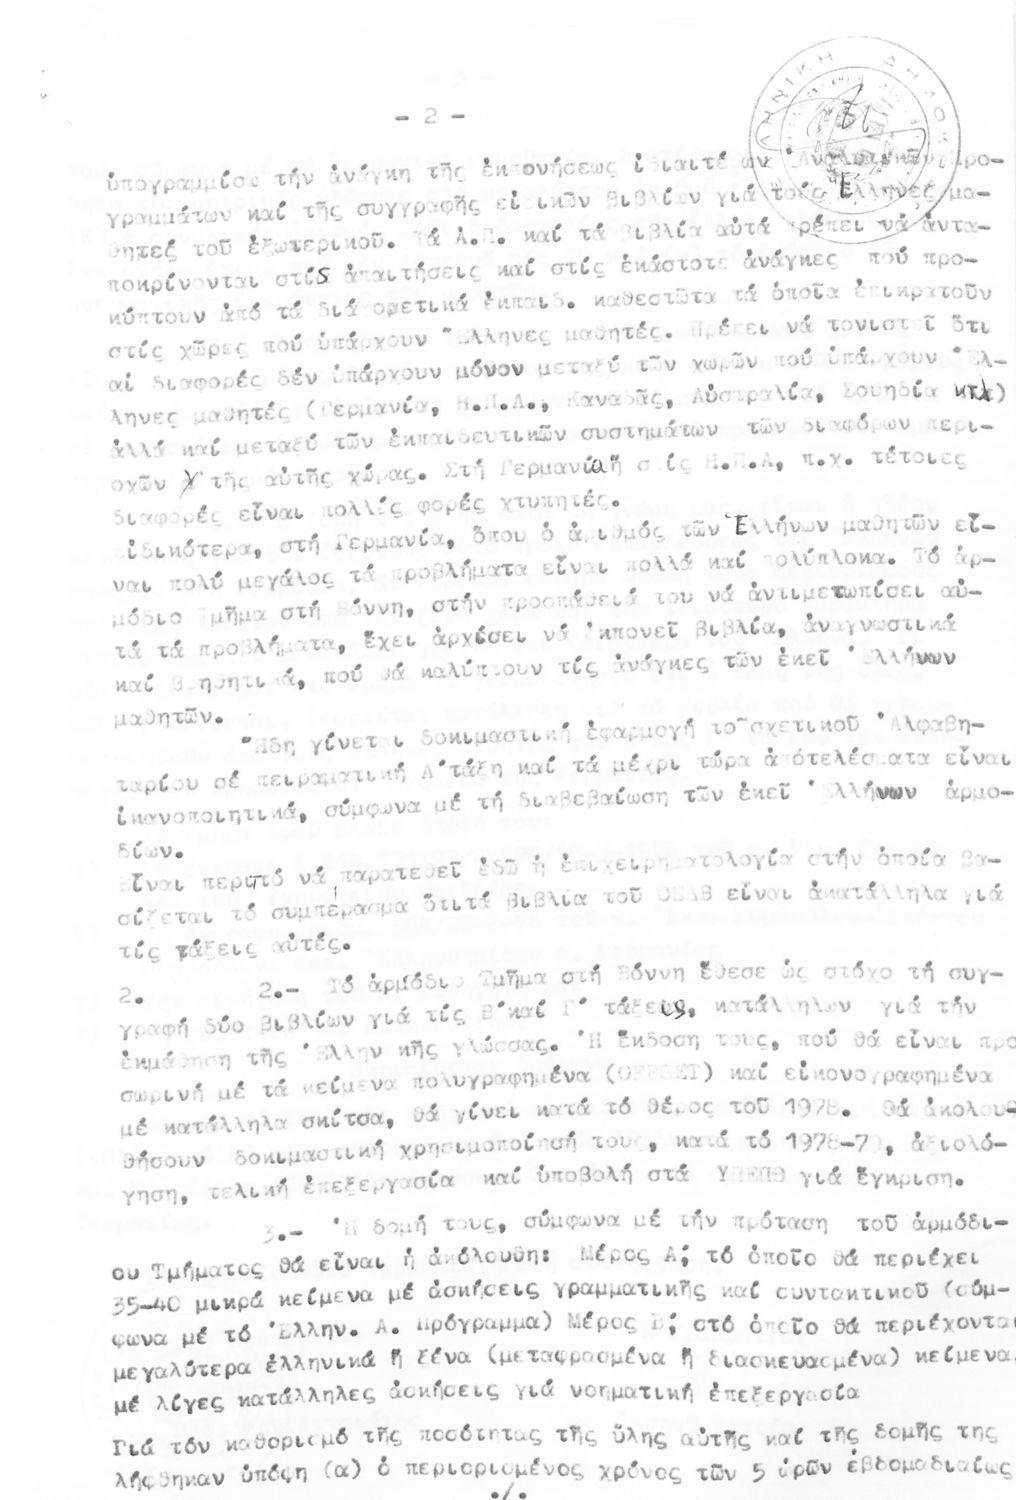 - 2 -
ὑπογραμμίσω τήν ἀνάγκη τῆς ἐκπονήσεως ἰδιαιτέρων Ἀναλυτικῶν Προ-
γραμμάτων καί τῆς συγγραφῆς εἰδικῶν βιβλίων γιά τούς Ἕλληνες μα-
θητές τοῦ ἐξωτερικοῦ. Τά Α.Π. καί τά βιβλία αὐτά πρέπει νά ἀντα-
ποκρίνονται στίς ἀπαιτήσεις καί στίς ἑκάστοτε ἀνάγκες πού προ-
κύπτουν ἀπό τά διάφορετικά ἐκπαιδ. καθεστῶτα τά ὁποῖα ἐπικρατοῦν
στίς χῶρες πού ὑπάρχουν Ἕλληνες μαθητές. Πρέπει νά τονιστεῖ ὅτι
αἱ διαφορές δέν ὑπάρχουν μόνον μεταξύ τῶν χωρῶν πού ὑπάρχουν Ἕλ-
ληνες μαθητές (Γερμανία, Η.Π.Α., Καναδᾶς, Αὐστραλία, Σουηδία κτλ)
ἀλλά καί μεταξύ τῶν ἐκπαιδευτικῶν συστημάτων τῶν διαφόρων περι-
οχῶν τῆς αὐτῆς χώρας. Στή Γερμανία ἤ στίς Η.Π.Α, π.χ. τέτοιες
διαφορές εἶναι πολλές φορές χτυπητές.
εἰδικότερα, στή Γερμανία, ὅπου ὁ ἀριθμός τῶν Ἑλλήνων μαθητῶν εἶ-
ναι πολύ μεγάλος τά προβλήματα εἶναι πολλά καί πολύπλοκα. Τό ἁρ-
μόδιο Τμῆμα στή Βόννη, στήν προσπάθειά του νά ἀντιμετωπίσει αὐ-
τά τά προβλήματα, ἔχει ἀρχίσει νά ἐκπονεῖ βιβλία, ἀναγνωστικά
καί βοηθητικά, πού θά καλύπτουν τίς ἀνάγκες τῶν ἐκεῖ Ἑλλήνων
μαθητῶν.
Ἤδη γίνεται δοκιμαστική ἐφαρμογή τοῦ σχετικοῦ Ἀλφαβη-
ταρίου σέ πειραματική Α΄τάξη καί τά μέχρι τώρα ἀπότελέσματα εἶναι
ἱκανοποιητικά, σύμφωνα μέ τή διαβεβαίωση τῶν ἐκεῖ Ἑλλήνων ἁρμο-
δίων.
Εἶναι περιττό νά παρατεθεῖ ἐδῶ ἡ ἐπιχειρηματολογία στήν ὁποία βα-
σίζεται τό συμπέρασμα ὅτιτά βιβλία τοῦ ΟΕΔΒ εἶναι ἀκατάλληλα γιά
τίς τάξεις αὐτές.
2. 2.- Τό ἁρμόδιο Τμῆμα στή Βόννη ἔθεσε ὡς στόχο τή συγ-
γραφή δύο βιβλίων γιά τίς Β΄καί Γ΄ τάξεις, κατάλληλων γιά τήν
ἐκμάθηση τῆς Ἑλληνικῆς γλώσσας. Ἡ ἔκδοση τους, πού θά εἶναι προ
σωρινή μέ τά κείμενα πολυγραφημένα (OFFSET) καί εἰκονογραφημένα
μέ κατάλληλα σκίτσα, θά γίνει κατά τό θέρος τοῦ 1978. Θά ἀκολου-
θήσουν δοκιμαστική χρησιμοποίησή τους, κατά τό 1978-79, ἀξιολό-
γηση, τελική ἐπεξεργασία καί ὑποβολή στά ΥΠΕΠΘ γιά ἔγκριση.
3.- Ἡ δομή τους, σύμφωνα μέ τήν πρόταση τοῦ ἁρμόδι-
ου Τμήματος θά εἶναι ἡ ἀκόλουθη: Μέρος Α΄; τό ὁποῖο θά περιέχει
35-40 μικρά κείμενα μέ ἀσκήσεις γραμματικῆς καί συντακτικοῦ (σύμ-
φωνα μέ τό Ἑλλην. Α. Πρόγραμμα) Μέρος Β΄; στό ὁποῖο θά περιέχονται
μεγαλύτερα ἑλληνικά ἤ ξένα (μεταφρασμένα ἤ διασκευασμένα) κείμενα,
μέ λίγες κατάλληλες ἀσκήσεις γιά νοηματική ἐπεξεργασία
Γιά τόν καθορισμό τῆς ποσότητας τῆς ὕλης αὐτῆς καί τῆς δομῆς της
λήφθηκαν ὑπόψη (α) ὁ περιορισμένος χρόνος τῶν 5 ὡρῶν ἑβδομαδιαίως
./.